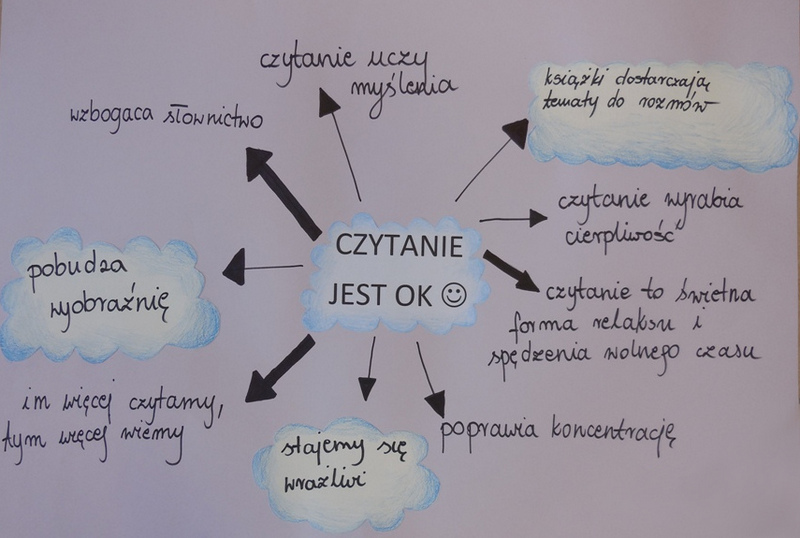 czytanie uczy
myślenia
książki dostarczają
tematy do rozmów
wzbogaca słownictwo
czytanie wyrabia
cierpliwość
CZYTANIE
JEST OK ☺
pobudza
wyobraźnię
czytanie to świetna
forma relaksu i
spędzenia wolnego czasu
im więcej czytamy,
tym więcej wiemy
stajemy się
wrażliwi
poprawia koncentrację